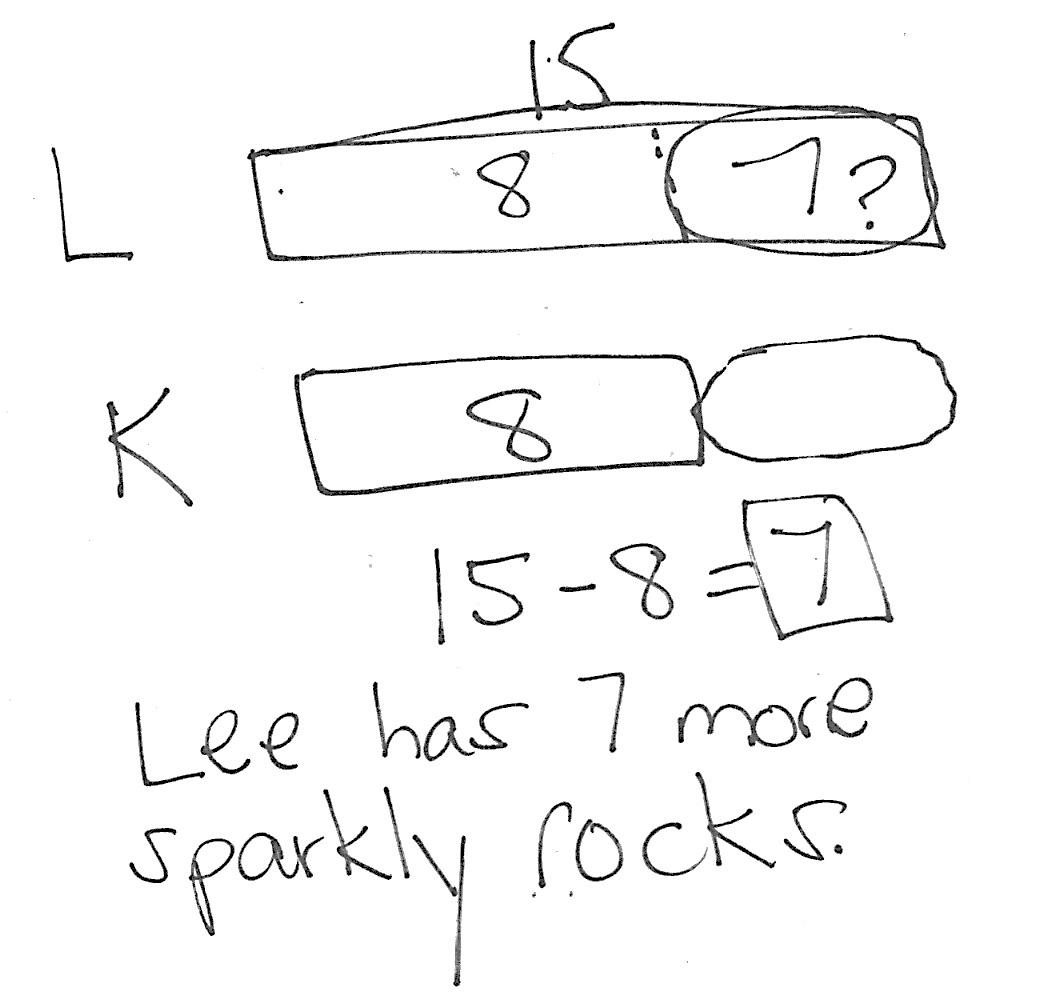 15
L 8 7?
K 8
15-8=7
Lee has 7 more
sparkly rocks.